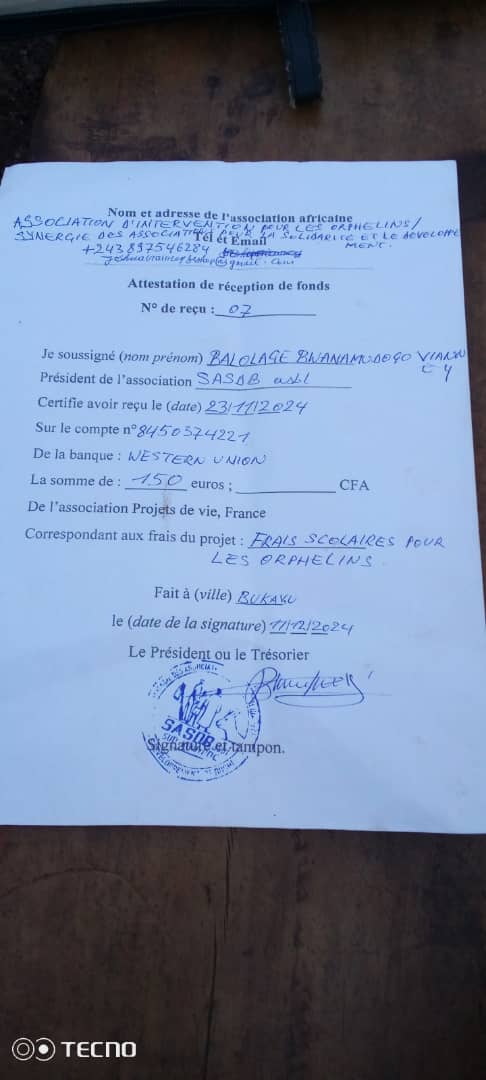 Nom et adresse de l'association africaine
ASSOCIATION D'INTERVENTION POUR LES ORPHELINS/
SYNERGIE DES ASSOCIATIONS POUR LA SOLIDARITE ET LE DEVELOPPE
MENT.
Tél et Email
+243 897546284
@gmail.com
Attestation de réception de fonds
N° de reçu : 07
Je soussigné (nom prénom) BALOLAGE BWANAMUDOGO VIANN
EY
Président de l'association SASDB asbl
Certifie avoir reçu le (date) 23/11/2024
Sur le compte n° 8450374221
De la banque : WESTERN UNION
La somme de : 150 euros ; CFA
De l'association Projets de vie, France
Correspondant aux frais du projet : FRAIS SCOLAIRES POUR
LES ORPHELINS.
Fait à (ville) BUKAVU
le (date de la signature) 11/12/2024
Le Président ou le Trésorier
SASDB
Signature et tampon.
TECNO